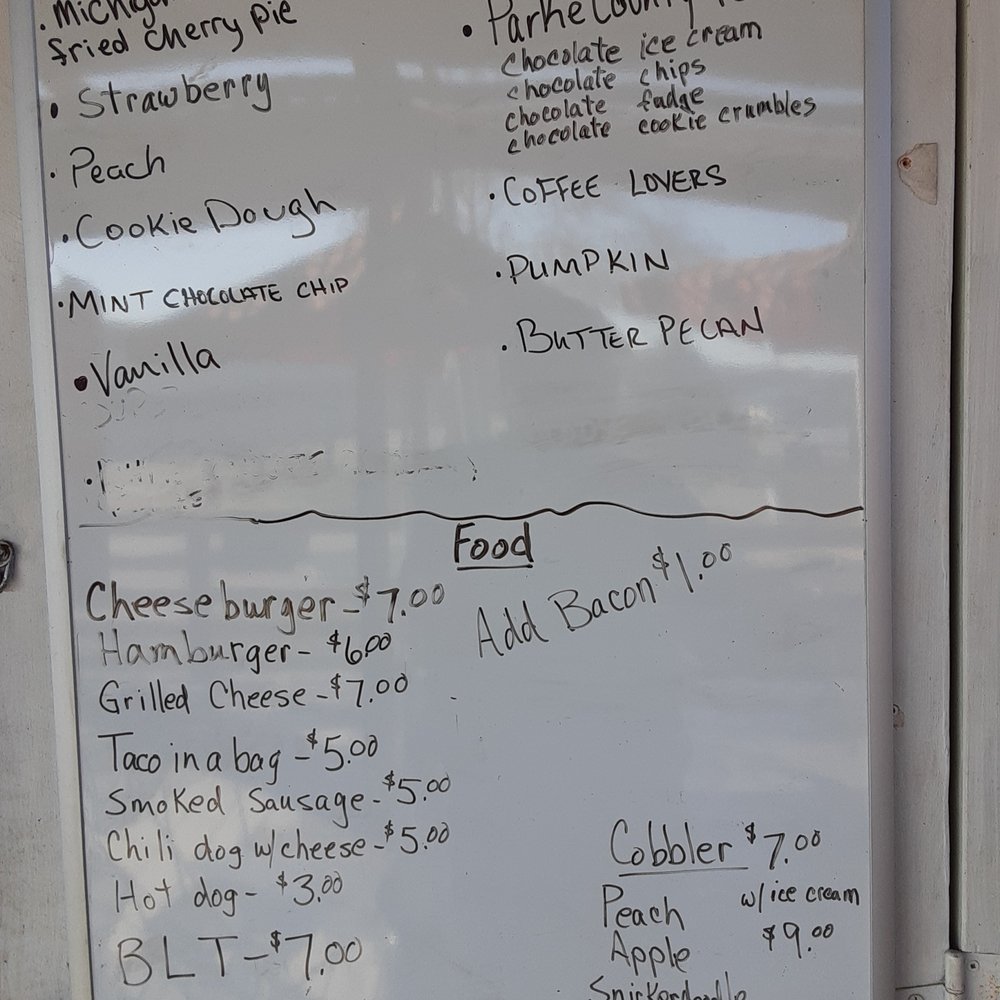 fried cherry pie
• Strawberry
• Peach
• Cookie Dough
• MINT CHOCOLATE CHIP
• Vanilla
• Parke County
chocolate ice cream
chocolate chips
chocolate fudge
chocolate cookie crumbles
• COFFEE LOVERS
• PUMPKIN
• BUTTER PECAN
Food
Cheeseburger - $7.00
Add Bacon $1.00
Hamburger - $6.00
Grilled Cheese - $7.00
Taco in a bag - $5.00
Smoked Sausage - $5.00
Chili dog w/cheese - $5.00
Hot dog - $3.00
BLT - $7.00
Cobbler $7.00
Peach w/ice cream
Apple $9.00
Snickerdoodle